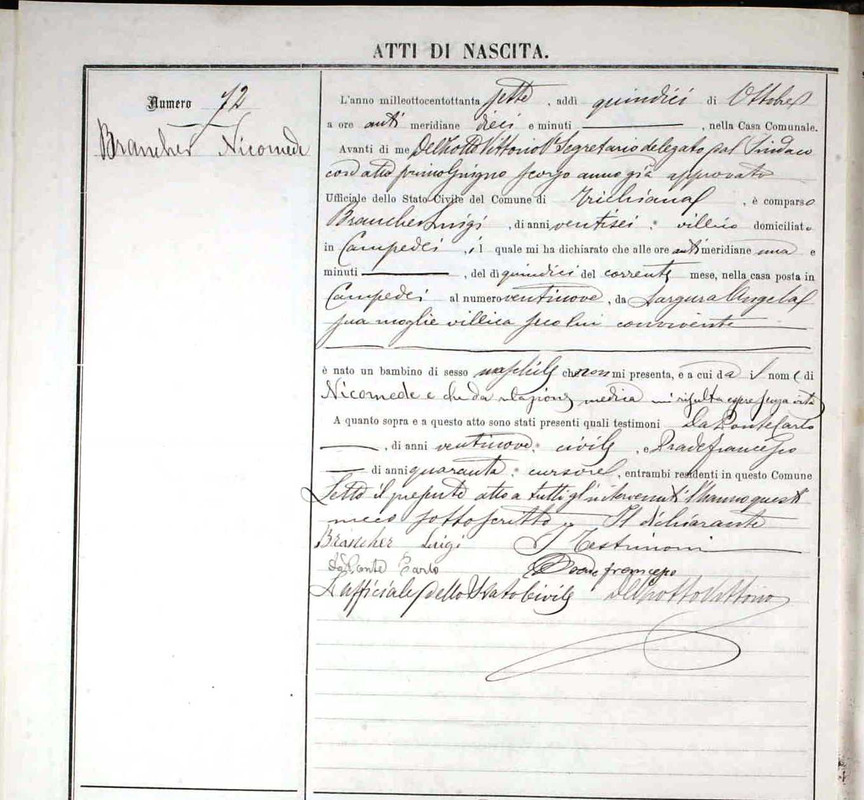 ATTI DI NASCITA.
Numero 72
Brancher Nicomede
L'anno milleottocentottanta sette, addì quindici di Ottobre
a ore anti meridiane dieci e minuti ———, nella Casa Comunale.
Avanti di me Vittorio Segretario delegato dal Sindaco
con atto primo Giugno scorso anno già approvato
Ufficiale dello Stato Civile del Comune di Trichiana, è comparso
Brancher Luigi, di anni ventisei: villico domiciliato
in Campedei, il quale mi ha dichiarato che alle ore antimeridiane una e
minuti ———, del dì quindici del corrente mese, nella casa posta in
Campedei al numero ventinove, da Angela
sua moglie villica seco lui convivente
è nato un bambino di sesso maschile che non mi presenta, e a cui dà il nome di
Nicomede e che da relazione medica mi risulta essere senza vita
A quanto sopra e a questo atto sono stati presenti quali testimoni Da Ponte Carlo
———, di anni ventinove: civile, e
— di anni quaranta: cursore, entrambi residenti in questo Comune
Letto il presente atto a tutti gl'intervenuti l'hanno questi
meco sottoscritto Il dichiarante
Brancher Luigi I Testimoni
Da Ponte Carlo
L'ufficiale dello Stato Civile Vittorio